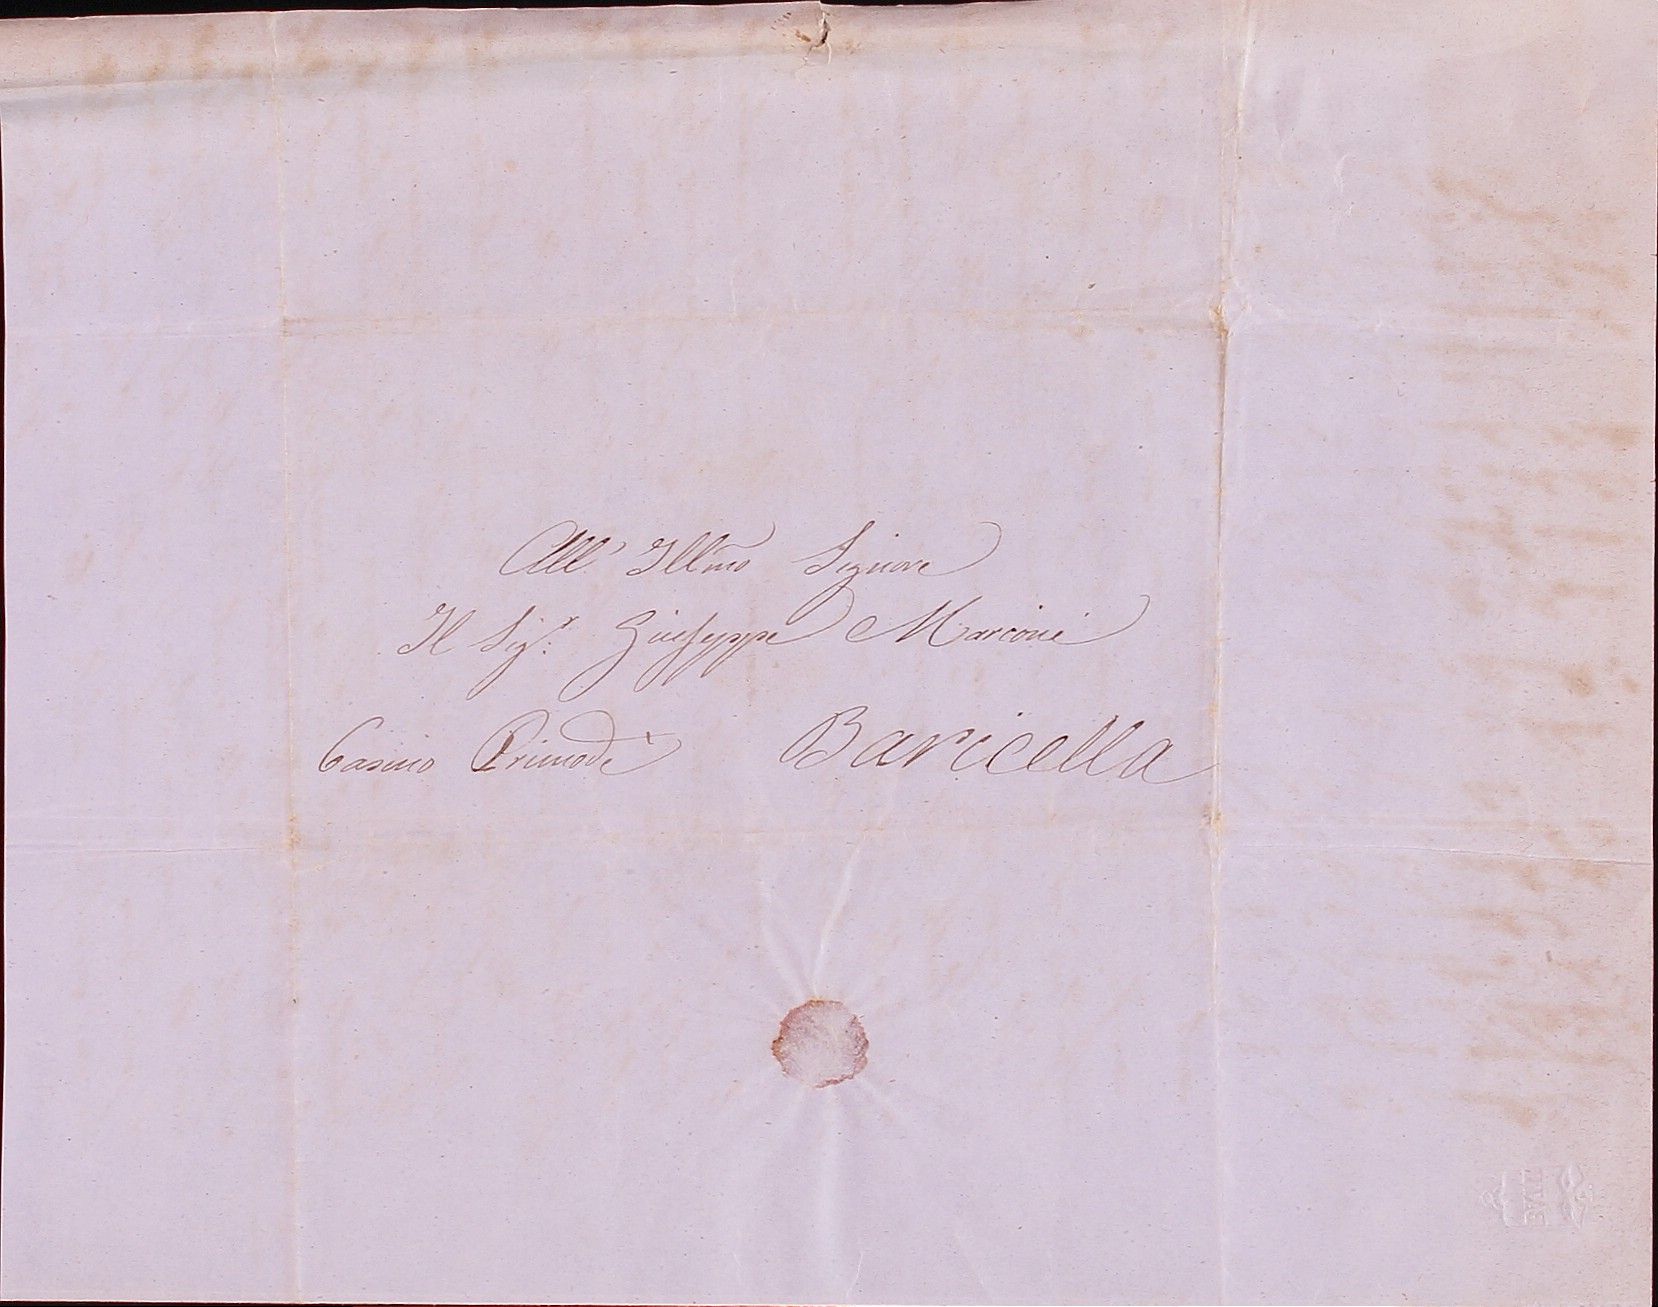 All' Illmo Signore
Il Sigr. Giuseppe Marconi
Casino Primodì Baricella